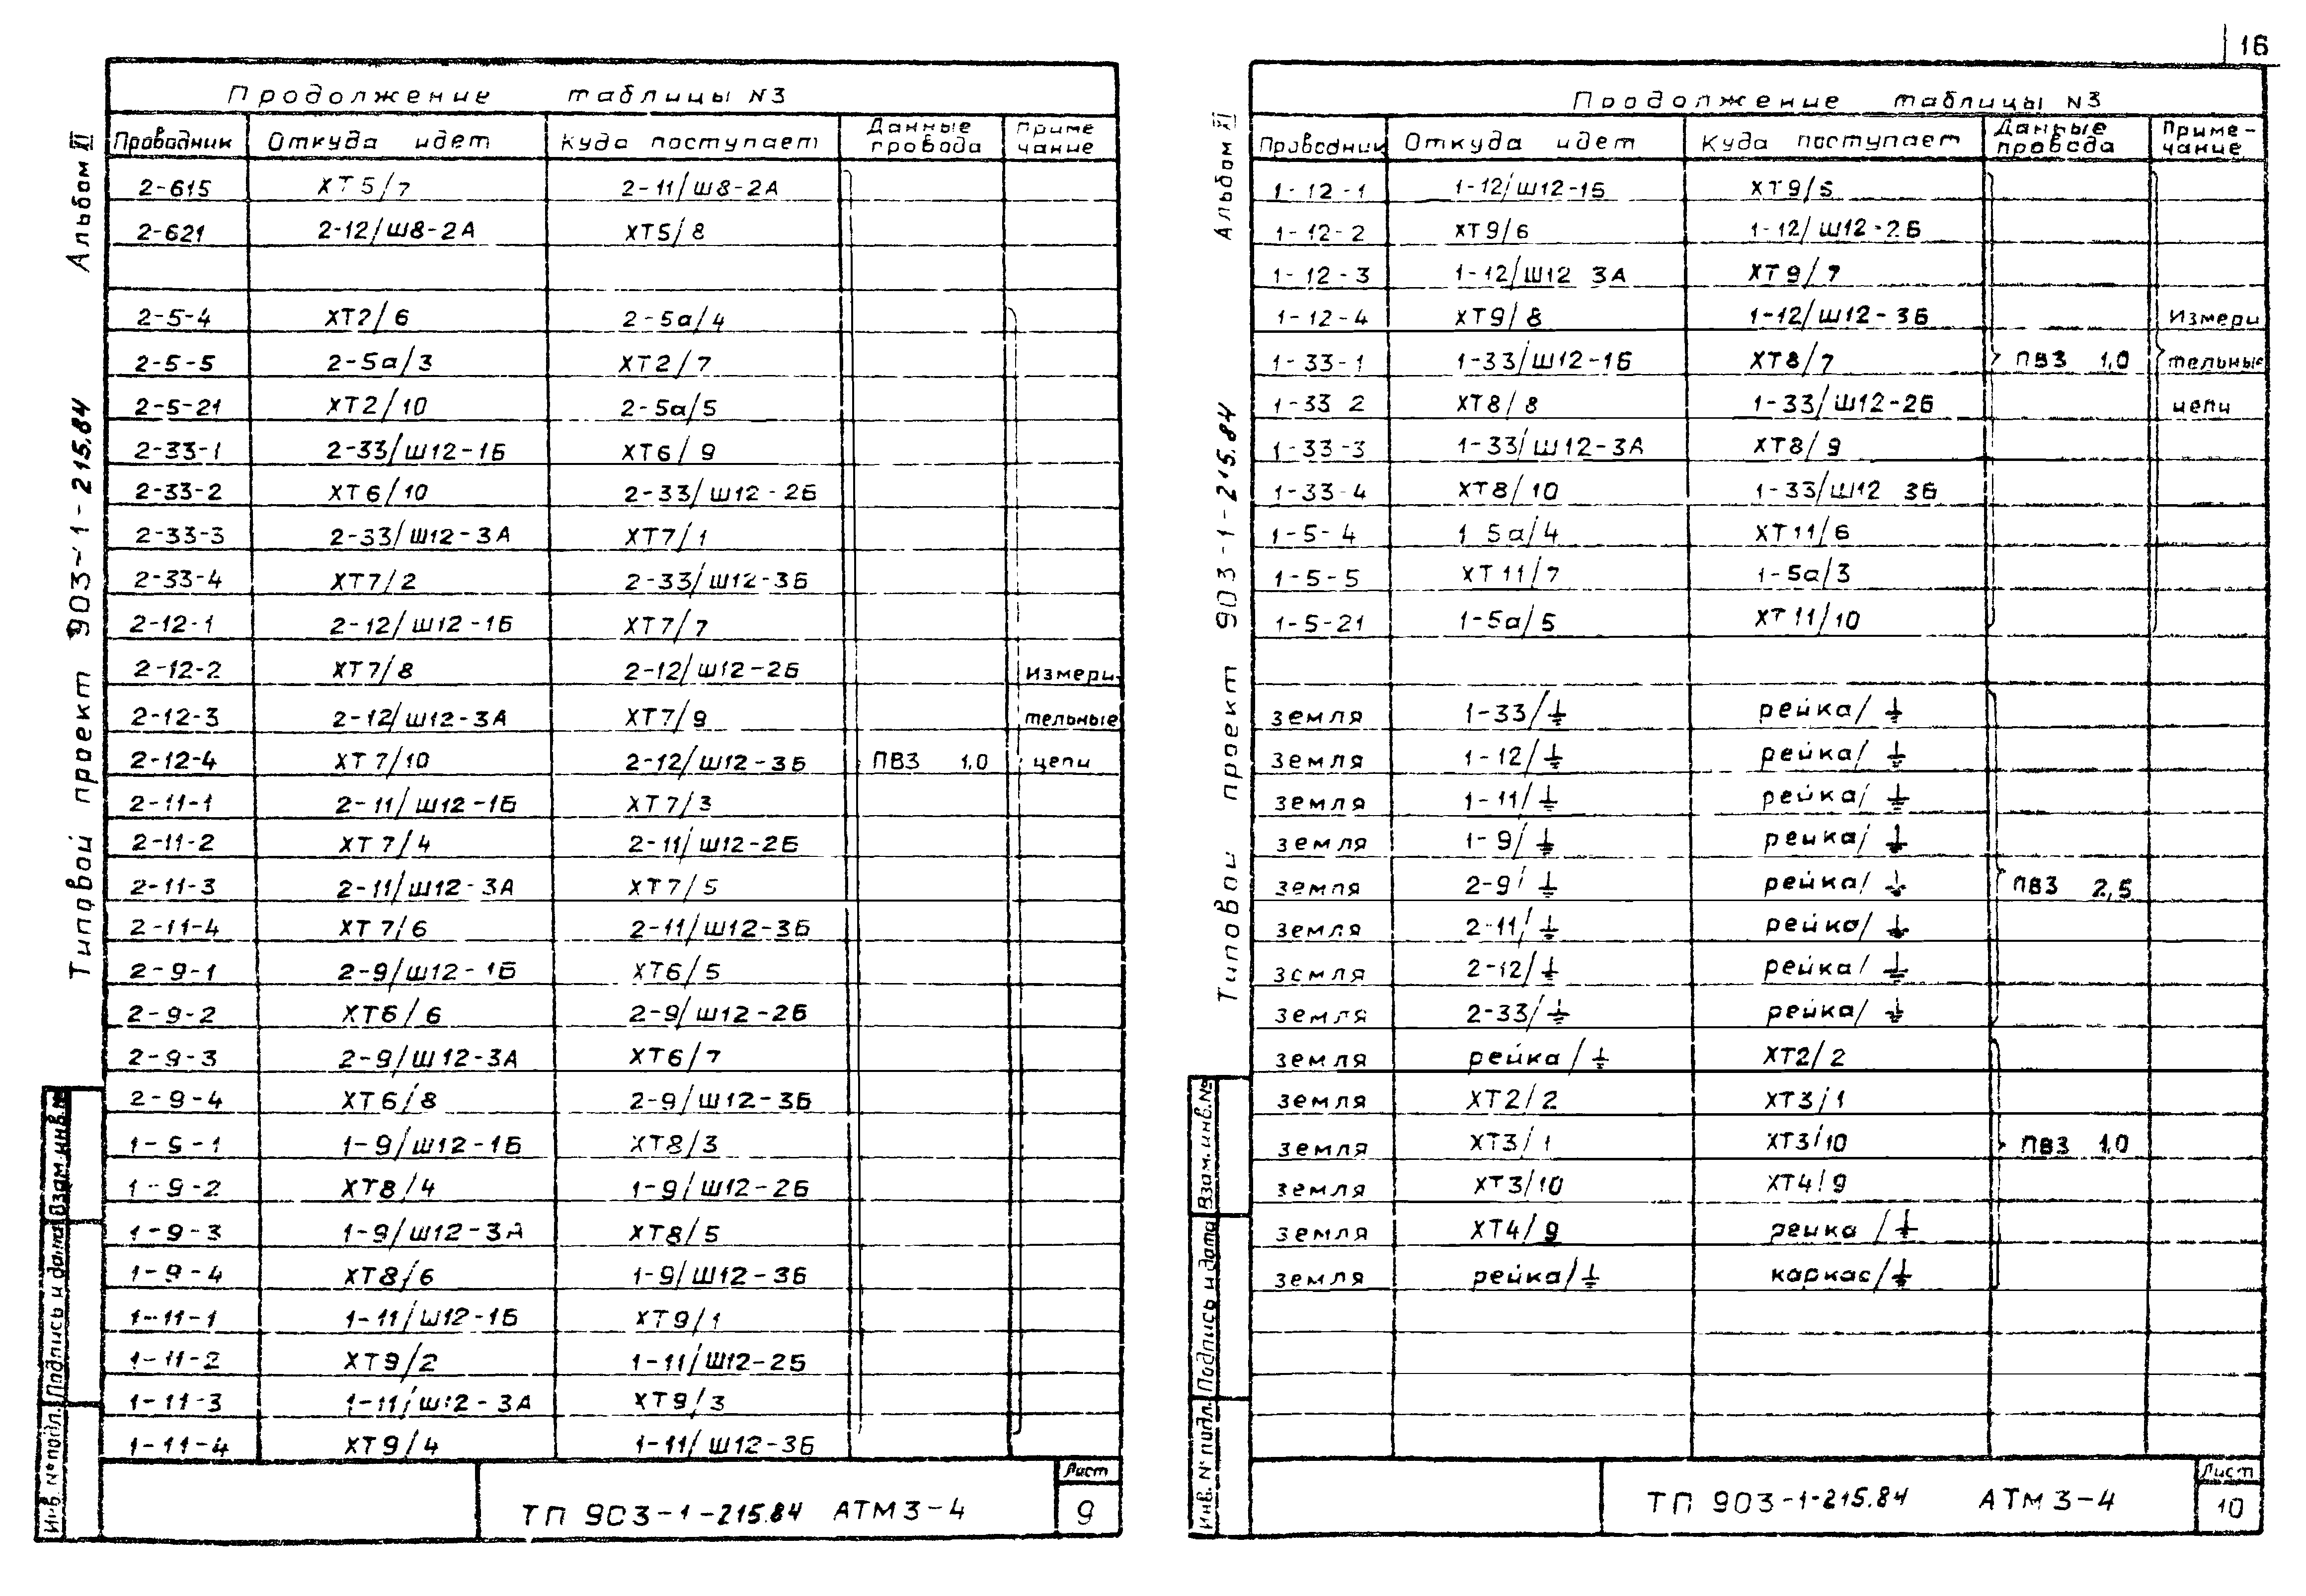 16
Альбом XI
Типовой проект 903-1-215.84
Взам.инв.№
Подпись и дата
Инв. № подл.
Продолжение таблицы N3
Проводник Откуда идет Куда поступает Данные провода Приме чание
2-615 XT5/7 2-11/Ш8-2А
2-621 2-12/Ш8-2А XT5/8
2-5-4 XT2/6 2-5а/4
2-5-5 2-5а/3 XT2/7
2-5-21 XT2/10 2-5а/5
2-33-1 2-33/Ш12-1Б XT6/9
2-33-2 XT6/10 2-33/Ш12-2Б
2-33-3 2-33/Ш12-3А XT7/1
2-33-4 XT7/2 2-33/Ш12-3Б
2-12-1 2-12/Ш12-1Б XT7/7
2-12-2 XT7/8 2-12/Ш12-2Б Измери-
2-12-3 2-12/Ш12-3А XT7/9 тельные
2-12-4 XT7/10 2-12/Ш12-3Б ПВ3 1,0 цепи
2-11-1 2-11/Ш12-1Б XT7/3
2-11-2 XT7/4 2-11/Ш12-2Б
2-11-3 2-11/Ш12-3А XT7/5
2-11-4 XT7/6 2-11/Ш12-3Б
2-9-1 2-9/Ш12-1Б XT6/5
2-9-2 XT6/6 2-9/Ш12-2Б
2-9-3 2-9/Ш12-3А XT6/7
2-9-4 XT6/8 2-9/Ш12-3Б
1-9-1 1-9/Ш12-1Б XT8/3
1-9-2 XT8/4 1-9/Ш12-2Б
1-9-3 1-9/Ш12-3А XT8/5
1-9-4 XT8/6 1-9/Ш12-3Б
1-11-1 1-11/Ш12-1Б XT9/1
1-11-2 XT9/2 1-11/Ш12-2Б
1-11-3 1-11/Ш12-3А XT9/3
1-11-4 XT9/4 1-11/Ш12-3Б
ТП 903-1-215.84 АТМ3-4
Лист
9
Альбом XI
Типовой проект 903-1-215.84
Взам.инв.№
Подпись и дата
Инв. № подл.
Продолжение таблицы N3
Проводник Откуда идет Куда поступает Данные провода Приме-чание
1-12-1 1-12/Ш12-1Б XT9/5
1-12-2 XT9/6 1-12/Ш12-2Б
1-12-3 1-12/Ш12 3А XT9/7
1-12-4 XT9/8 1-12/Ш12-3Б Измери
1-33-1 1-33/Ш12-1Б XT8/7 ПВ3 1,0 тельные
1-33 2 XT8/8 1-33/Ш12-2Б цепи
1-33-3 1-33/Ш12-3А XT8/9
1-33-4 XT8/10 1-33/Ш12 3Б
1-5-4 1 5а/4 XT11/6
1-5-5 XT11/7 1-5а/3
1-5-21 1-5а/5 XT11/10
земля 1-33/⏚ рейка/⏚
земля 1-12/⏚ рейка/⏚
земля 1-11/⏚ рейка/⏚
земля 1-9/⏚ рейка/⏚
земля 2-9/⏚ рейка/⏚ ПВ3 2,5
земля 2-11/⏚ рейка/⏚
земля 2-12/⏚ рейка/⏚
земля 2-33/⏚ рейка/⏚
земля рейка/⏚ XT2/2
земля XT2/2 XT3/1
земля XT3/1 XT3/10 ПВ3 1,0
земля XT3/10 XT4/9
земля XT4/9 рейка/⏚
земля рейка/⏚ каркас/⏚
ТП 903-1-215.84 АТМ3-4
Лист
10